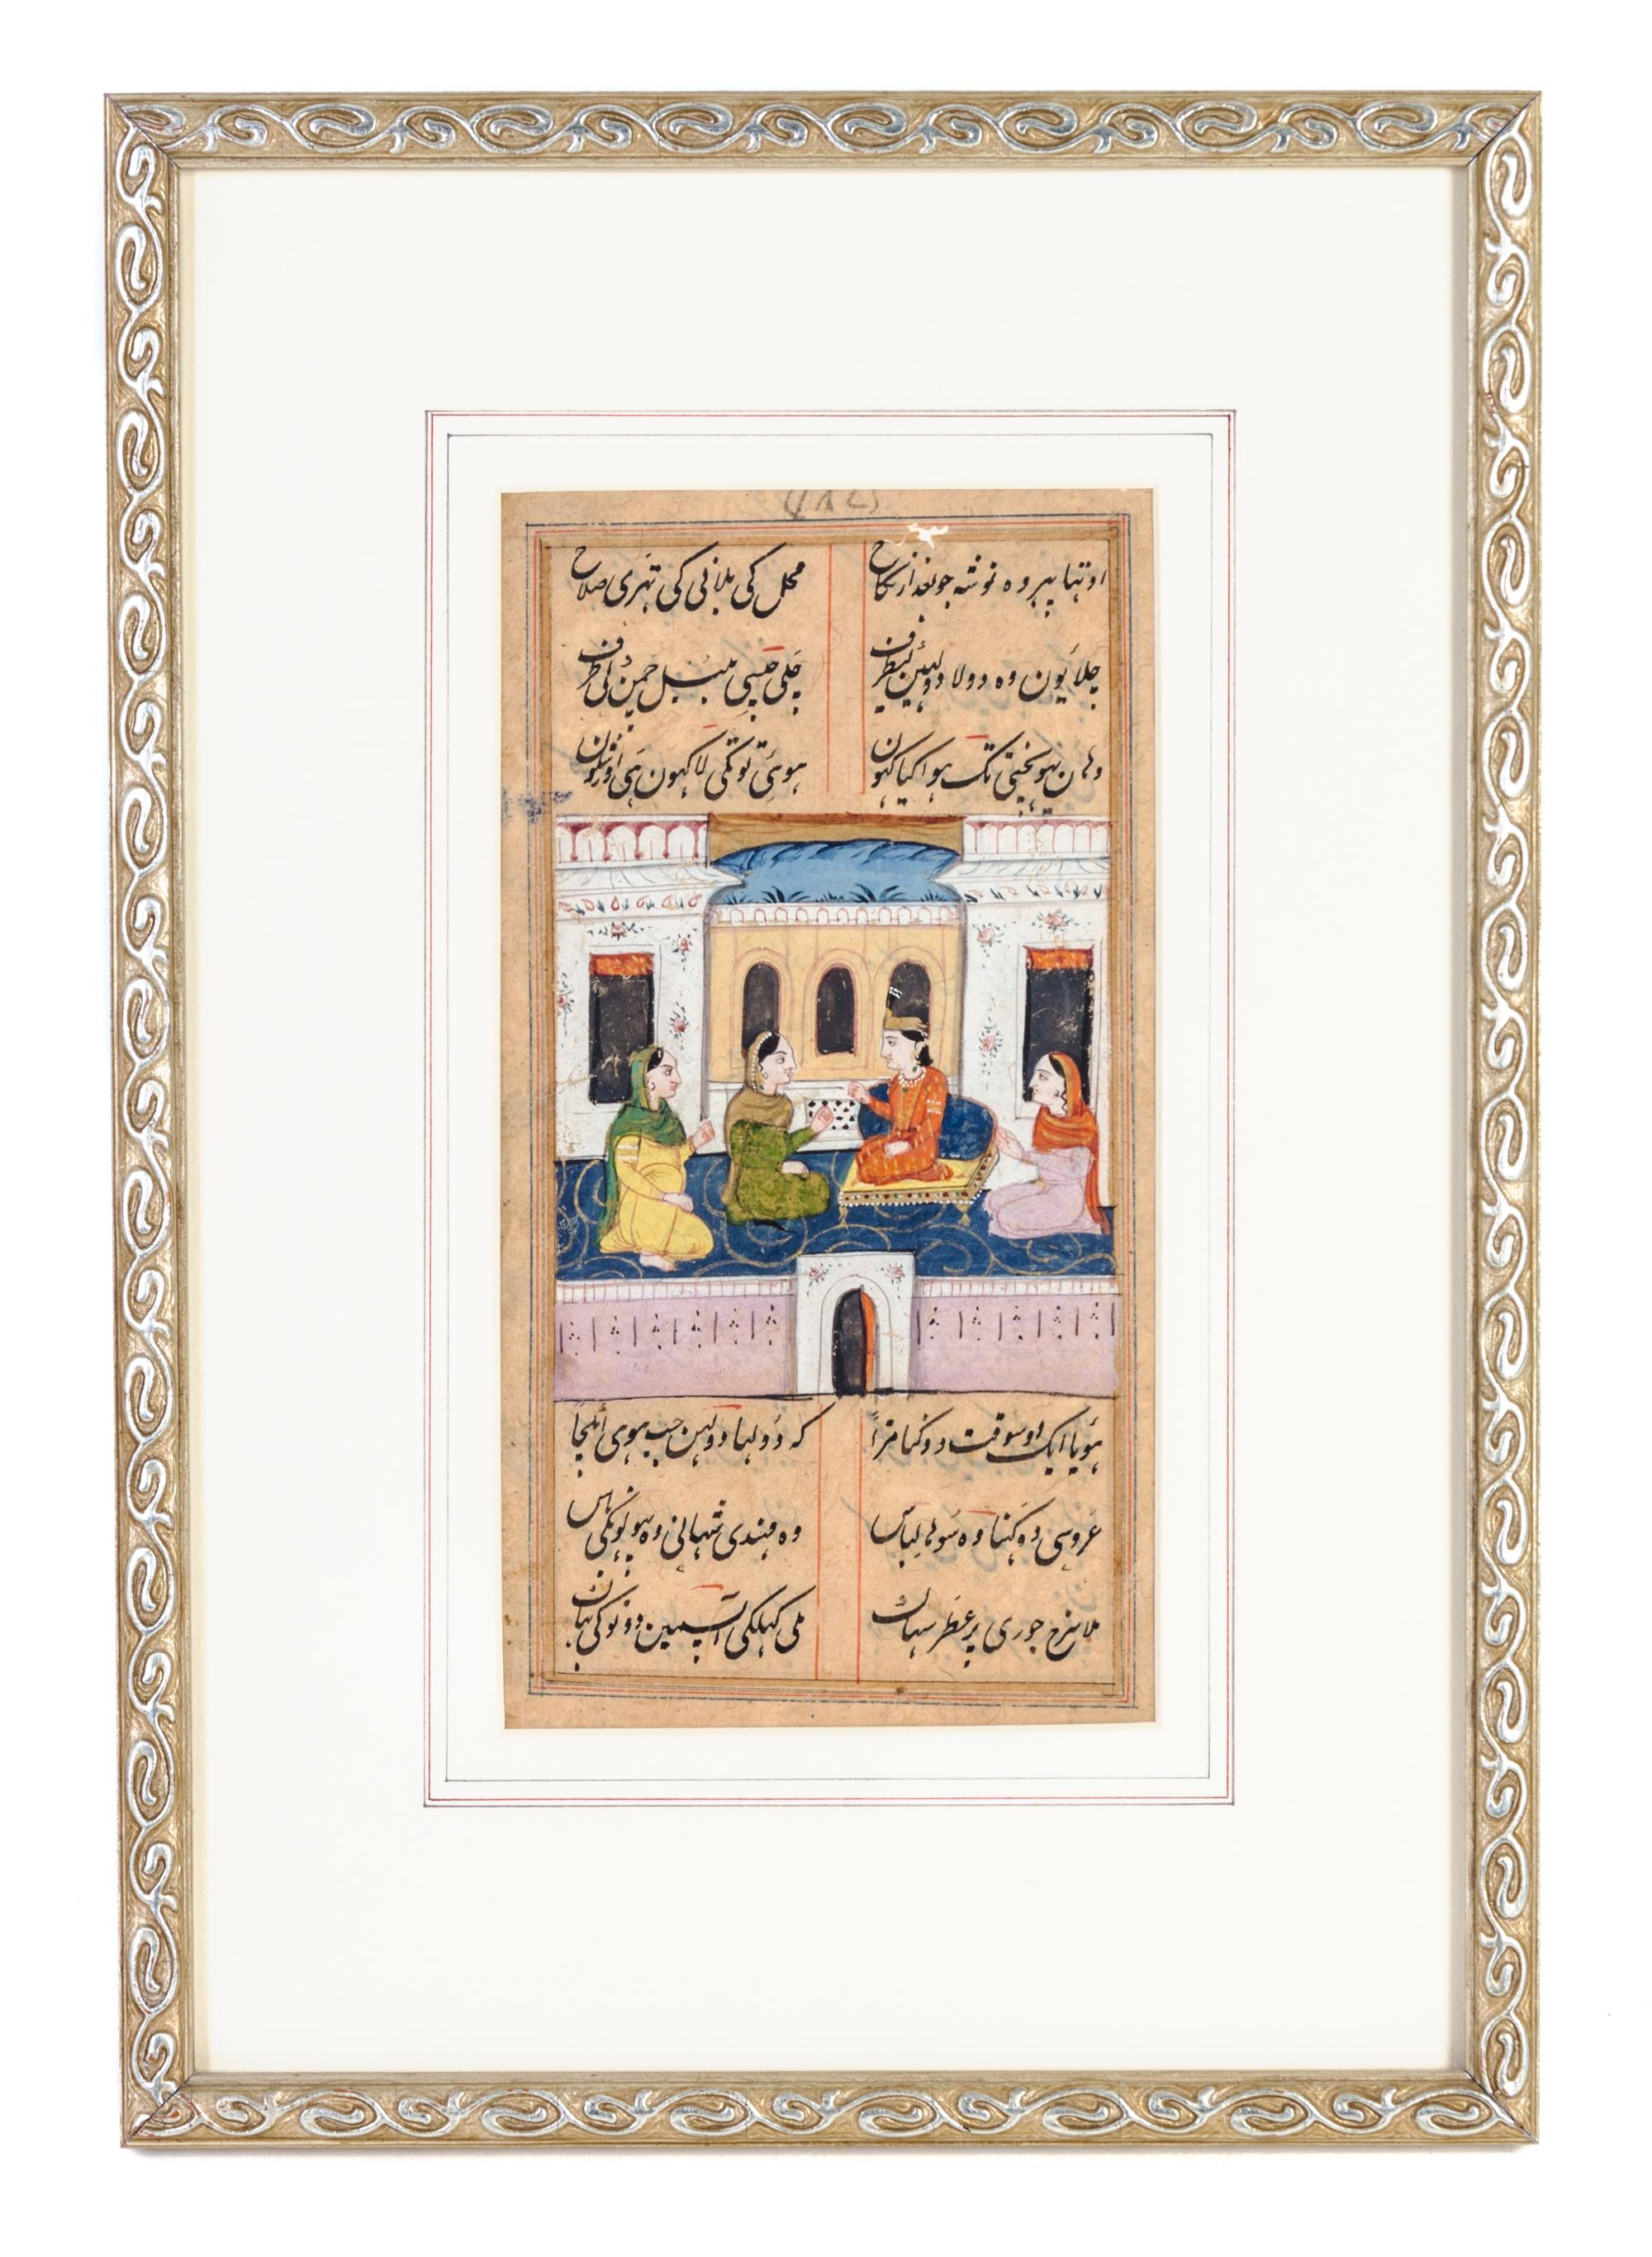 اوتہا پہر وہ نوشہ جو بعد از نکاح محل کی بلانی کی تہری صلاح
چلا یون وہ دولا دولہن کیطرف چلی جیسی بلبل چمن کی طرف
وہان پہونچتی تک ہوا کیا کہون ہوئی توتکی لاکہون ہی اور شگون
ہویا ایک اوسوقت دوگنا مزا کہ دولہا دولہن جب ہوی ایکجا
عروسی وہ گہنا وہ سوہا لباس وہ مہندی شہانی وہ پہولونکی باس
ملا سرخ جوری پر عطر سہاگ ملی کہلکی آپسمین دونوکی بہاگ